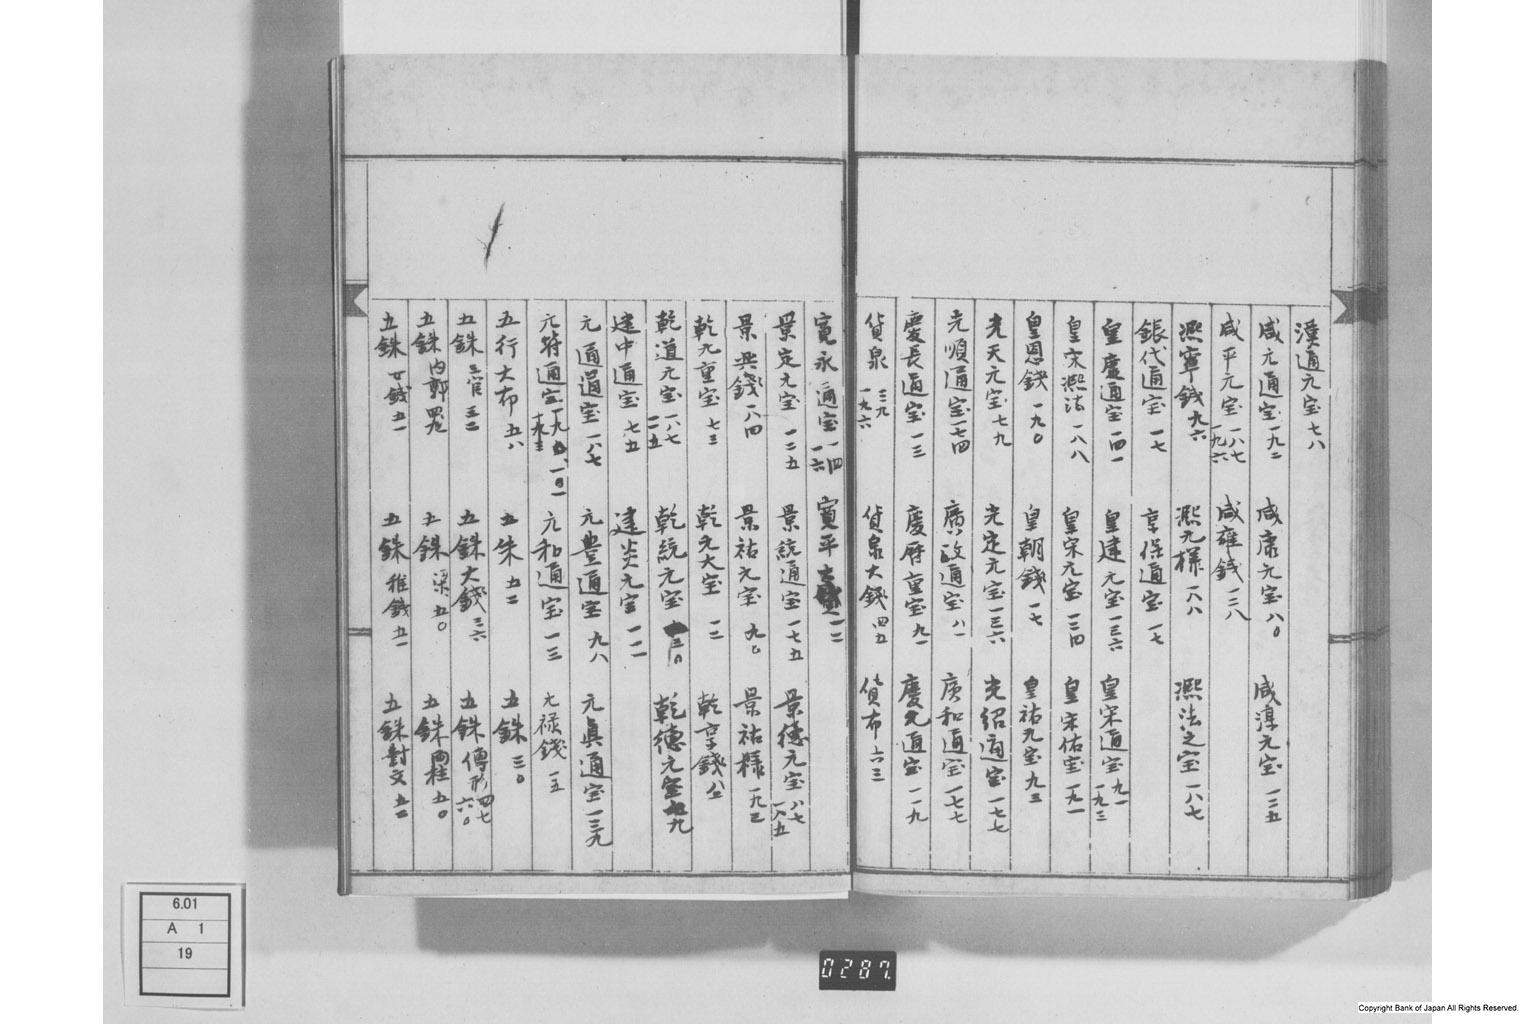 漢通元宝 七八
咸元通宝 一九二 咸康元宝 八〇 咸淳元宝 一三五
咸平元宝 一八七 一九六 咸雍銭 一三八
熙寧銭 九六 熙元様 一八八 熙法之宝 一八七
銀代通宝 一七 享保通宝 一七
皇慶通宝 一四一 皇建元宝 一三六 皇宋通宝 九一 一九三
皇宋熙法 一八八 皇宋元宝 一三四 皇宋佑宝 一九一
皇恩銭 一九〇 皇朝銭 一七 皇祐元宝 九三
光天元宝 七九 光定元宝 一三六 光紹通宝 一七七
光順通宝 一七四 廣政通宝 八一 廣和通宝 一七七
慶長通宝 一三 慶暦重宝 九一 慶元通宝 一一九
貨泉 三九 一九六 貨泉大銭 四五 貨布 六三
寛永通宝 一四 一六 寛平大宝 一二
景定元宝 一二五 景統通宝 一七五 景徳元宝 八七 一八五
景興銭 一八四 景祐元宝 九〇 景祐様 一九三
乾元重宝 七三 乾元大宝 一二 乾亨銭 八二
乾道元宝 一八七 一二五 乾統元宝 一三〇 乾徳元宝 七九
建中通宝 七五 建炎元宝 一一一
元通通宝 一八七 元豊通宝 九八 元眞通宝 一三九
元符通宝 一〇一 元和通宝 一三 元禄銭 一五
五行大布 五八 五朱 五二 五銖 三〇
五銖 三官 五銖大銭 三六 五銖 傳形 四七 六〇
五銖 内郭 五銖 梁 五〇 五銖 両柱 五〇
五銖 女銭 五一 五銖 稚銭 五一 五銖 對文 五二
6.01
A 1
19
0287.
Copyright Bank of Japan All Rights Reserved.